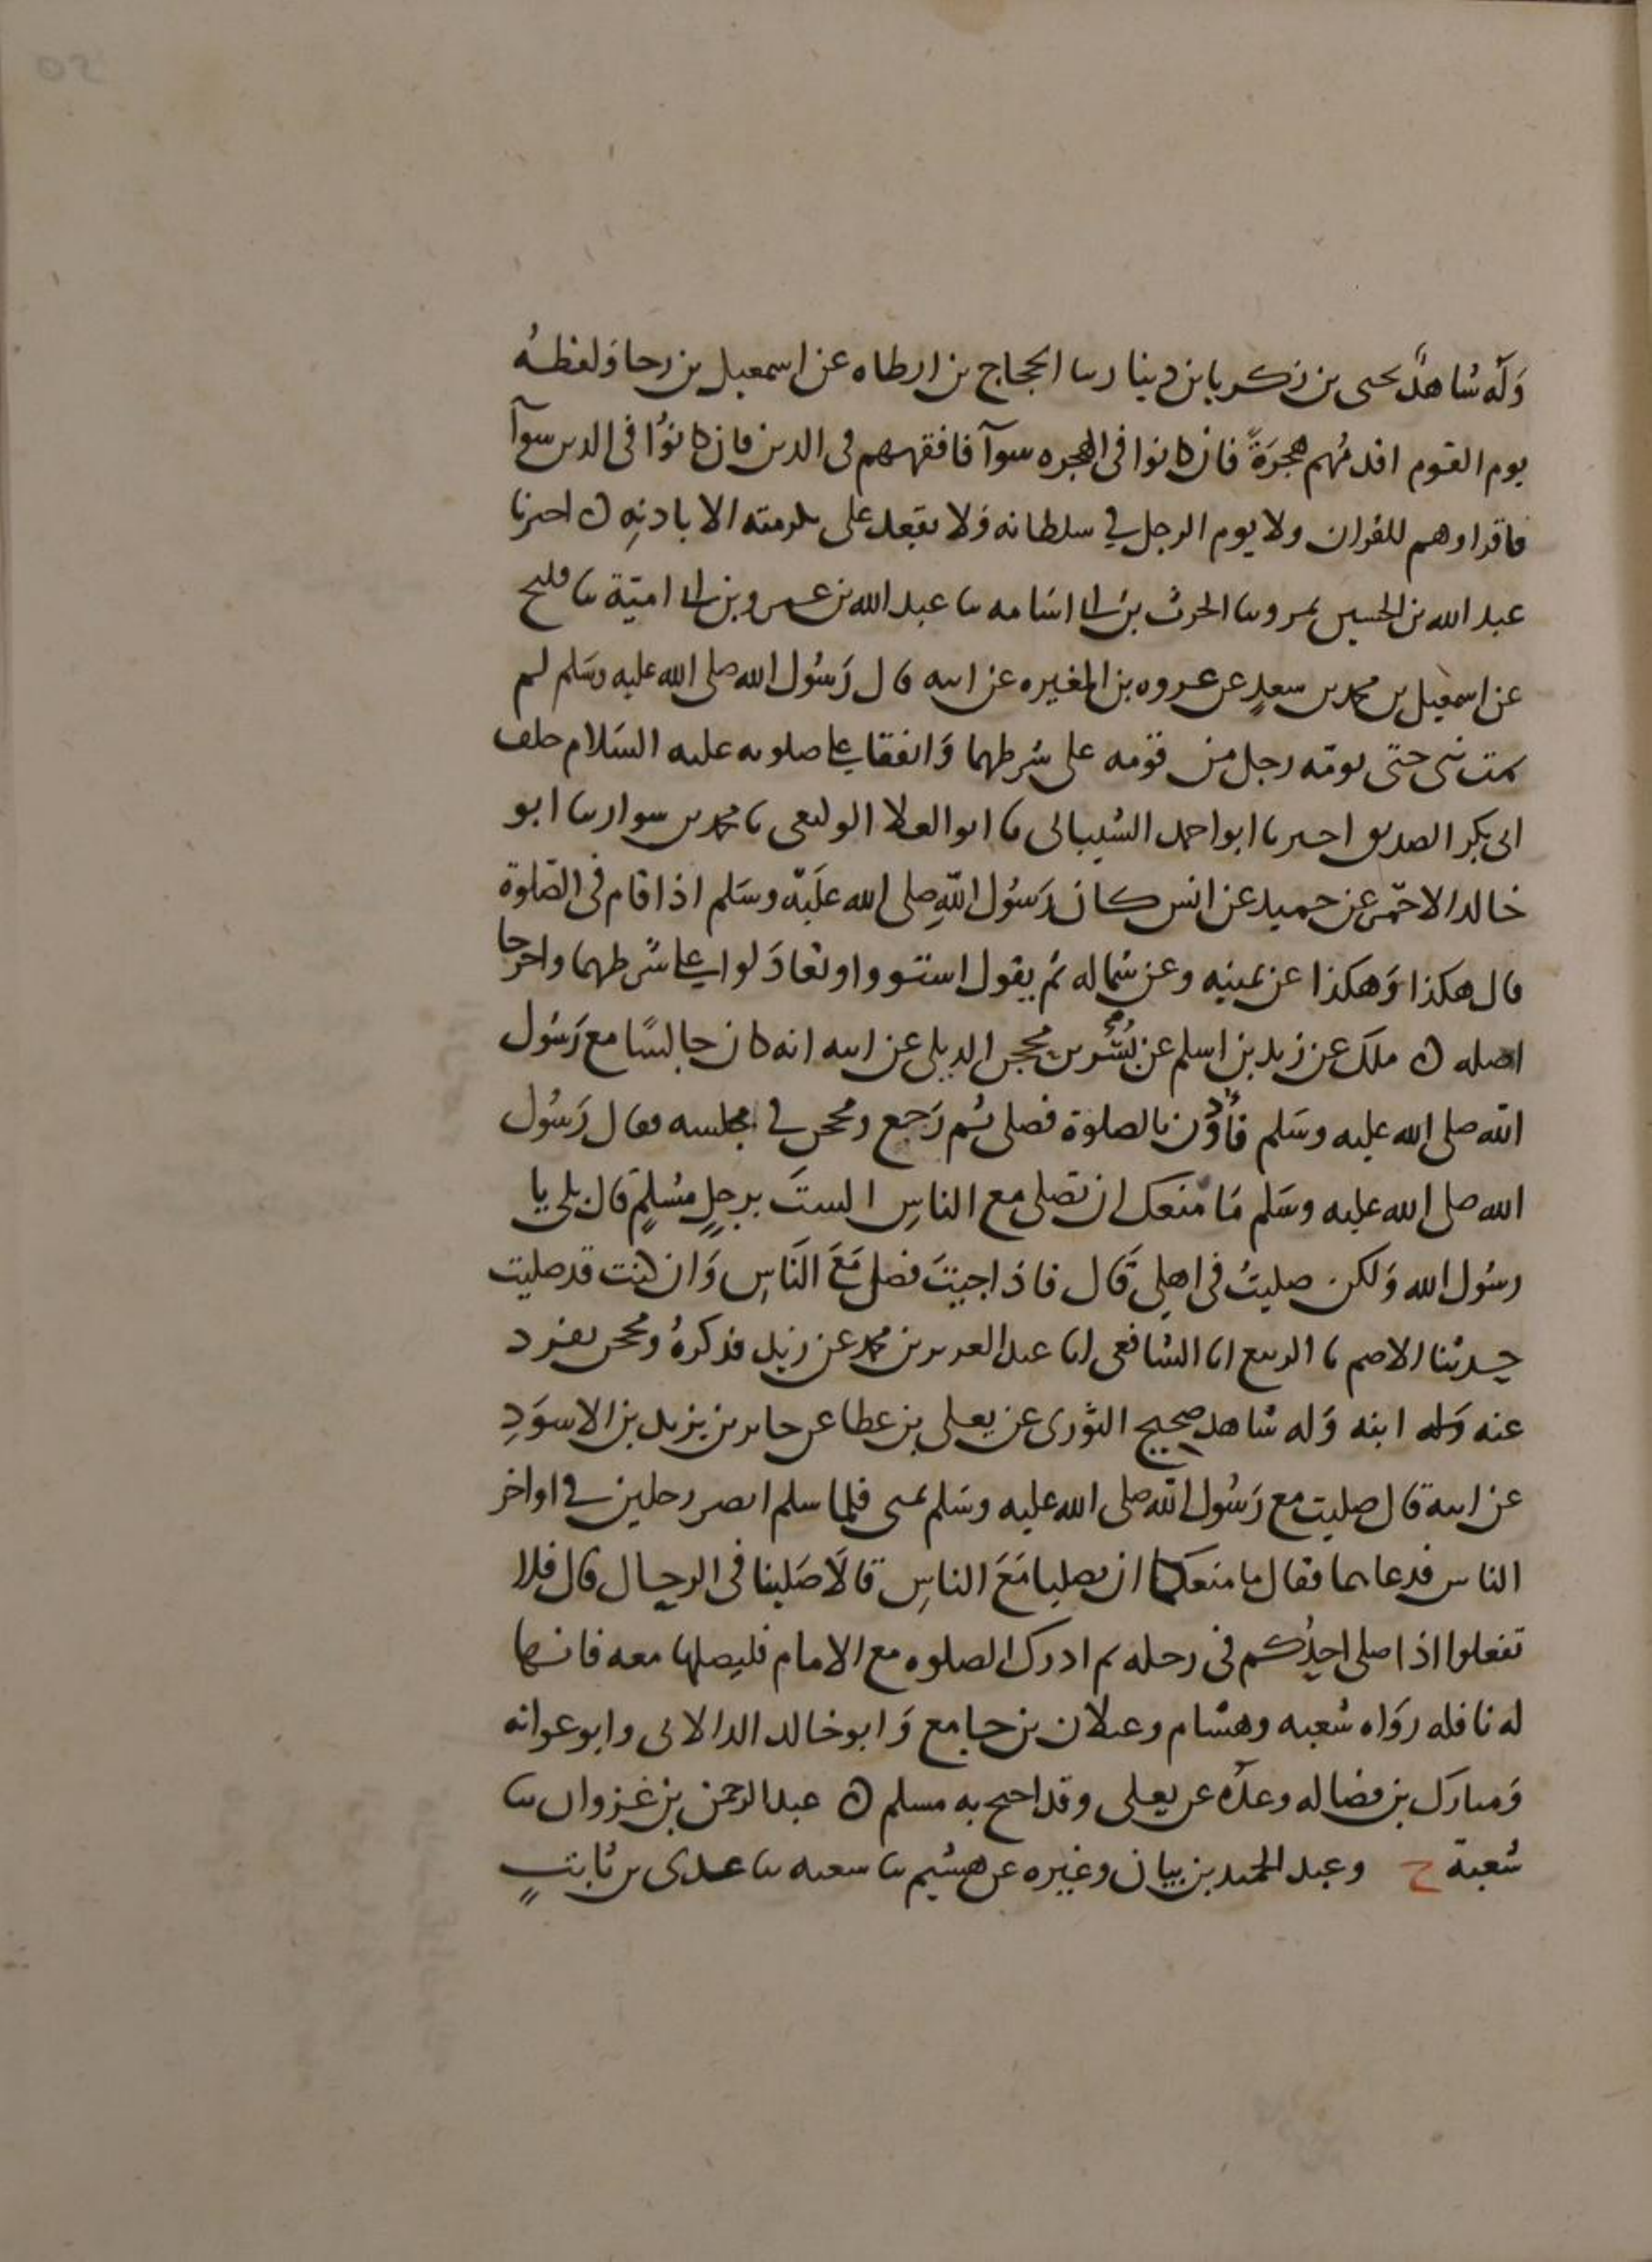 وَله شاهدٌ يحيى بن زكريا بن دينار سا الحجاج بن ارطاه عن اسمعيل بن رجا وَلفظهُ
يوم القوم اقدمُهم هجرَةً فان كانوا فى الهجره سوآ فافقههم فى الدين فان كانوُا فى الدين سوآ
فاقراوهم للقران ولا يوم الرجل في سلطانه وَلا يقعد على تكرمته الا باذنِهِ ه اخبرنا
عبد الله بن الحسين بمرو سا الحرث بن ابى اسَامه سا عبد الله بن عمرو بن ابى اميّة سا فليح
عن اسمعيل بن محمد بن سعدٍ عن عروه بن المغيره عن ابيه قال رَسُول الله صلى الله عليه وسَلم لم
يمت نبى حتى يومّه رجل من قومه على شرطهما وَاتفقا على صلوته عليه السَلام خلف
ابى بكر الصديق اخبرنا ابو احمد الشيبانى سا ابو العلا الوكيعى سا محمد بن سوار سا ابو
خالد الاحمَر عن حميد عن انس كان رَسُول اللهِ صلى الله عَليْه وسَلم اذا قام فى الصَلوة
قال هكذا وَهكذا عن يمينه وعن شماله ثم يقول استووا وتعادَلوا على شرطهما واخرجا
اصله ه ملك عن زيد بن اسلم عن بُسْر بن محجن الديلى عن ابيه انه كان جالسًا مع رَسُول
الله صلى الله عليه وسَلم فأُذّن بالصلوة فصلى ثم رَجع ومحجن في مجلسه فقال رَسُول
الله صلى الله عليه وسَلم مَا منعك ان تصلى مع الناسِ الستَ برجلٍ مسُلمٍ قال بلى يا
رسُول الله وَلكن صليتُ فى اهلى قَال فاذا جيتَ فصل مَعَ الناسِ وَان كنت قد صليت
حدثنا الاصم سا الربيع انا الشافعى انا عبد العزيز بن محمد عن زيد فذكرهُ ومحجن تفرد
عنه وَله ابنه وَله شاهد صحيح الثورى عن يعلى بن عطا عن جابر بن يزيد بن الاسوَدِ
عن ابيه قال صليت مع رَسُول الله صلى الله عليه وسَلم بمنى فلما سلم ابصر رجلين في اواخر
الناس فدعا بهما فقال ما منعكما ان تصليا مَعَ الناسِ قالَا صَلينا فى الرحال قال فلا
تفعلوا اذا صلى احدُكم فى رحله ثم ادرك الصلوه مع الامام فليصلها معه فانها
له نافله رَواه شعبه وهشام وغيلان بن جامع وَابو خالد الدالانى وابو عوانه
وَمبارك بن فضاله وعدّه عن يعلى وقد احتج به مسلم ه عبد الرحمن بن غزوان سا
شعبة ح وعبد الحميد بن بيان وغيره عن هشيم سا شعبه سا عدى بن ثابتٍ